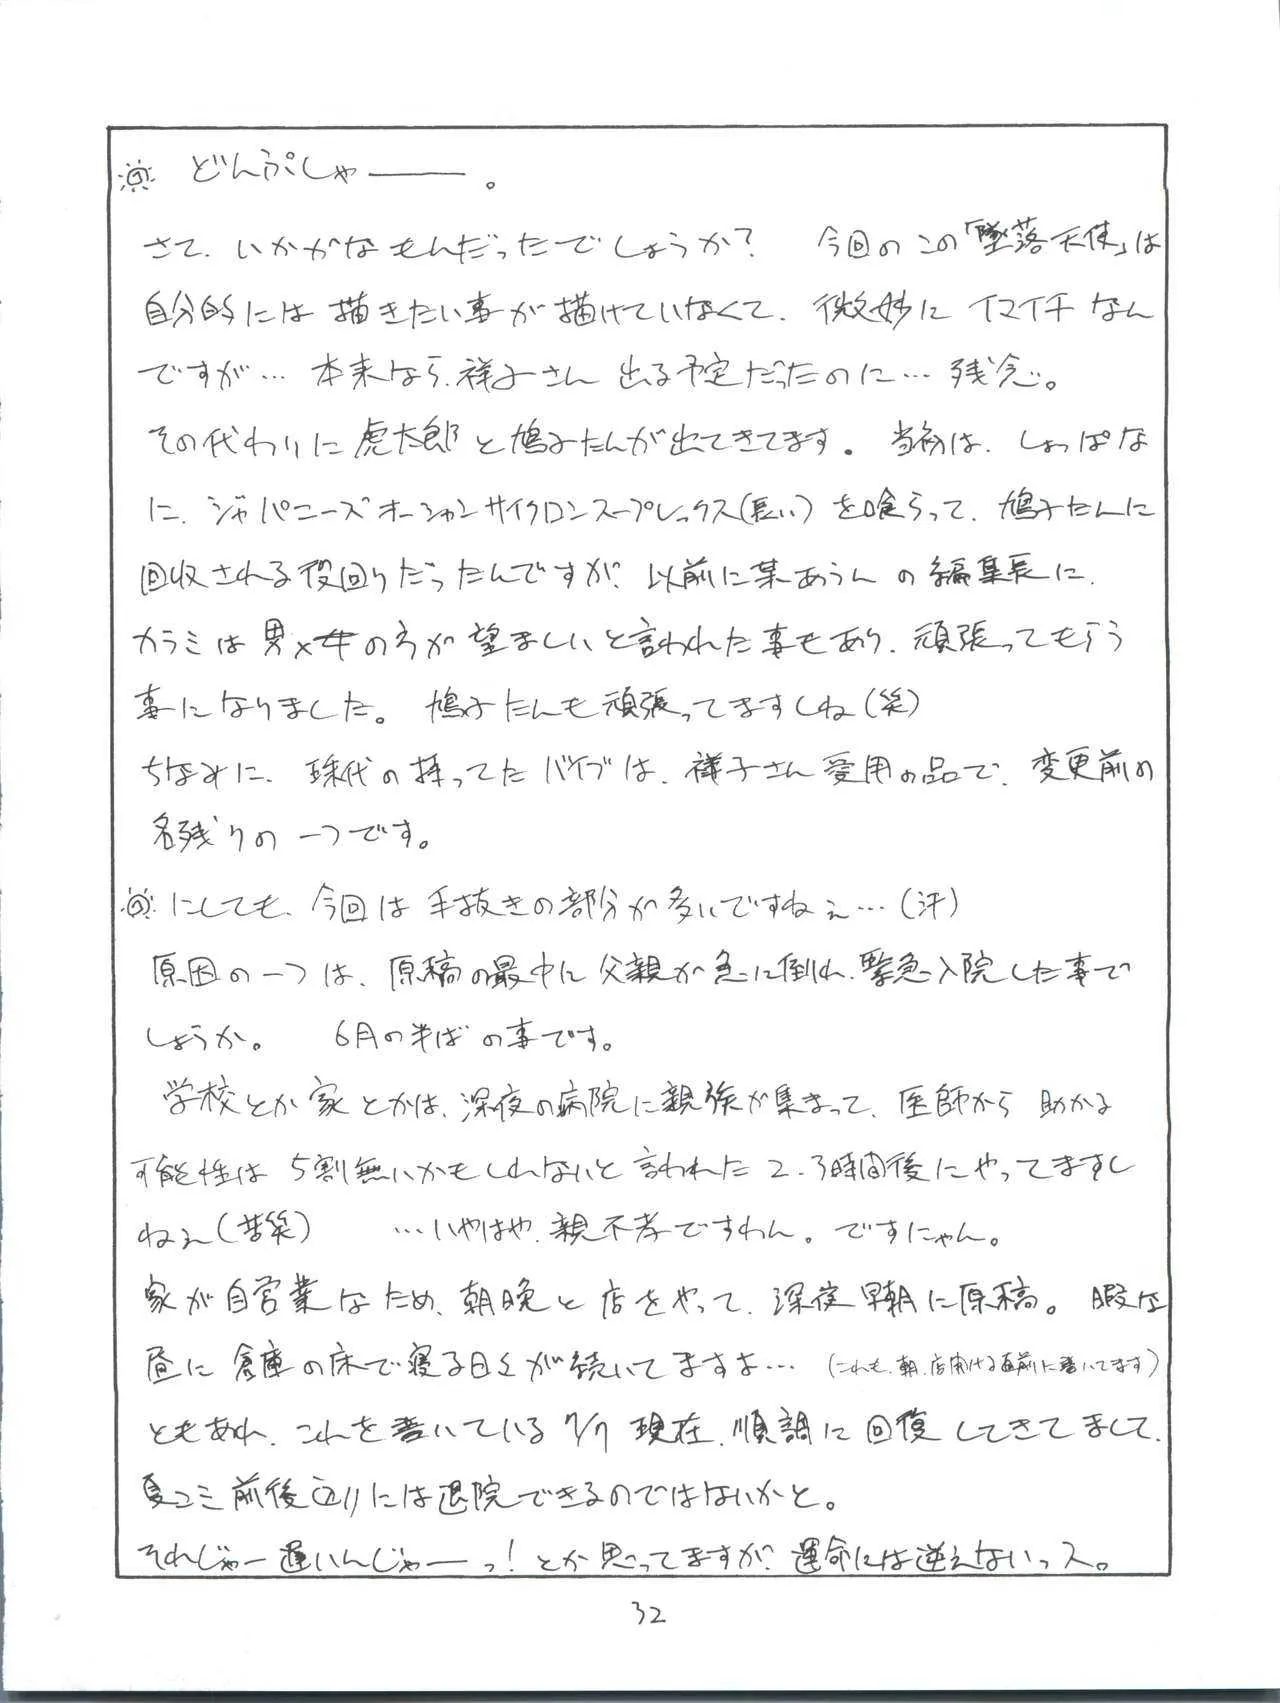 どんぷしゃーーー。
さて、いかがなもんだったでしょうか？ 今回のこの「墜落天使」は
自分的には描きたい事が描けていなくて、微妙にイマイチなん
ですが… 本来なら、祥子さん出る予定だったのに… 残念。
その代わりに虎太郎と鳩子たんが出てきてます。当初は、しょっぱな
に、ジャパニーズオーシャンサイクロンスープレックス(長い)を喰らって、鳩子たんに
回収される役回りだったんですが、以前に某あうんの編集長に、
カラミは男×女の方が望ましいと言われた事もあり、頑張ってもらう
事になりました。鳩子たんも頑張ってますしね(笑)
ちなみに、珠代の持ってたバイブは、祥子さん愛用の品で、変更前の
名残りの一つです。
にしても、今回は手抜きの部分が多いですねぇ…(汗)
原因の一つは、原稿の最中に父親が急に倒れ、緊急入院した事で
しょうか。 6月の半ばの事です。
学校とか家とかは、深夜の病院に親族が集まって、医師から助かる
可能性は5割無いかもしれないと言われた2、3時間後にやってますし
ねぇ(苦笑) …いやはや、親不孝ですわん。ですにゃん。
家が自営業なため、朝晩と店をやって、深夜早朝に原稿。暇な
昼に倉庫の床で寝る日々が続いてますよ… (これも、朝、店開ける直前に書いてます)
ともあれ、これを書いている7/7現在、順調に回復してきてまして、
夏コミ前後辺りには退院できるのではないかと。
それじゃー遅いんじゃーーっ！とか思ってますが、運命には逆えないっス。
32